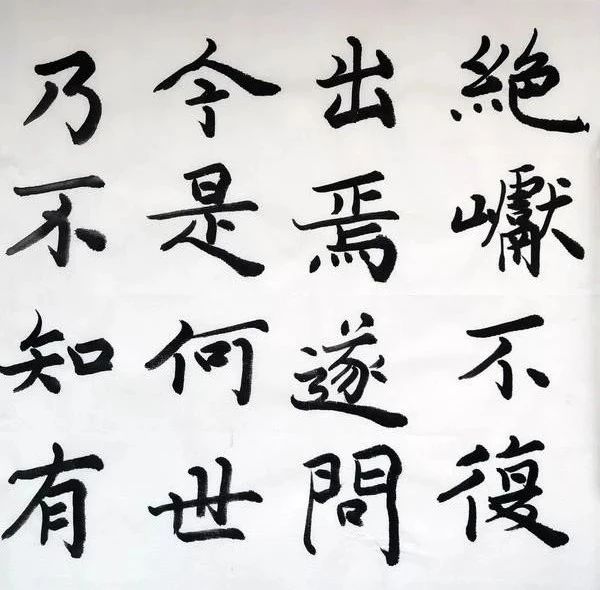 絶巘不復
出焉遂問
今是何世
乃不知有